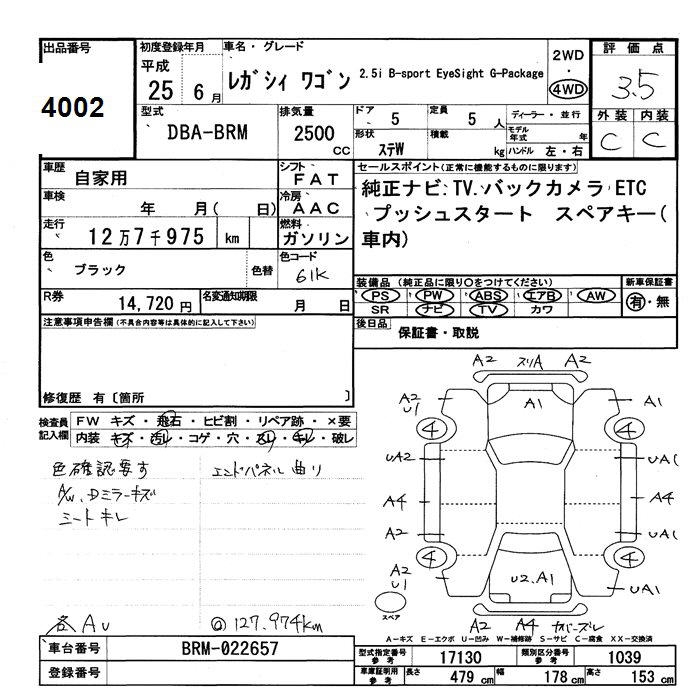 出品番号 初度登録年月 車名・グレード 2WD 評価点
4002 平成 25 6月 レガシィ ワゴン 2.5i B-sport EyeSight G-Package ・ 4WD 3.5
型式 排気量 ドア 5 定員 5人 ディーラー・並行 外装 内装
DBA-BRM 2500 CC 形状 ステW 積載 kg モデル年式 年 C C
ハンドル 左・右
車歴 自家用 シフト FAT セールスポイント(正常に機能するものに限ります)
車検 年 月( 日) 冷房 AAC 純正ナビ:TV.バックカメラ ETC
走行 12万7千975 km 燃料 ガソリン プッシュスタート スペアキー(
車内)
色 ブラック 色替 色コード 61K
装備品 (純正品に限り○をつけてください) 新車保証書
PS PW ABS エアB AW 有・無
SR ナビ TV カワ
R券 14,720円 名変通知期限 月 日
後日品 保証書・取説
注意事項申告欄(不具合内容等は具体的に記入して下さい)
修復歴 有〔箇所 〕
検査員記入欄 FW キズ・飛石・ヒビ割・リペア跡・×要
内装 キズ・汚レ・コゲ・穴・スレ・キレ・破レ
色確認要す エンドパネル曲り
A/W、Dミラーキズ
シートキレ
各AU @127,974km
A2 スリA A2
A2 U1 A1 A1
4 4
UA2 UA1
A4 A4
A2 UA1
4 4
A2 U1 U2.A1 UA1
スペア
A2 A4 カバーズレ
A-キズ E-エクボ U-凹み W-補修跡 S-サビ C-腐食 XX-交換済
車台番号 BRM-022657 型式指定番号 参考 17130 類別区分番号 参考 1039
登録番号 車庫証明用 参考 長さ 479 cm 幅 178 cm 高さ 153 cm